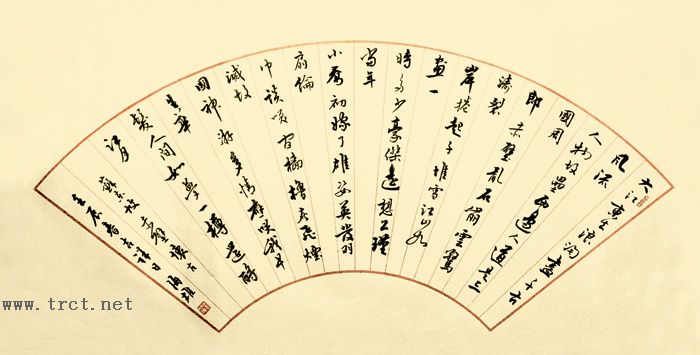 大江東去浪淘盡千古
風流
人物故壘西邊人道是三
國周
郎赤壁亂石崩雲驚
濤裂
岸捲起千堆雪江山如
畫一
時多少豪傑遙想公瑾
當年
小喬初嫁了雄姿英發羽
扇綸
巾談笑間檣櫓灰飛煙
滅故
國神遊多情應笑我早
生華
髮人間如夢一樽還酹
江月
蘇東坡赤壁懷古
壬辰春吉祥日海雄
www.trct.net